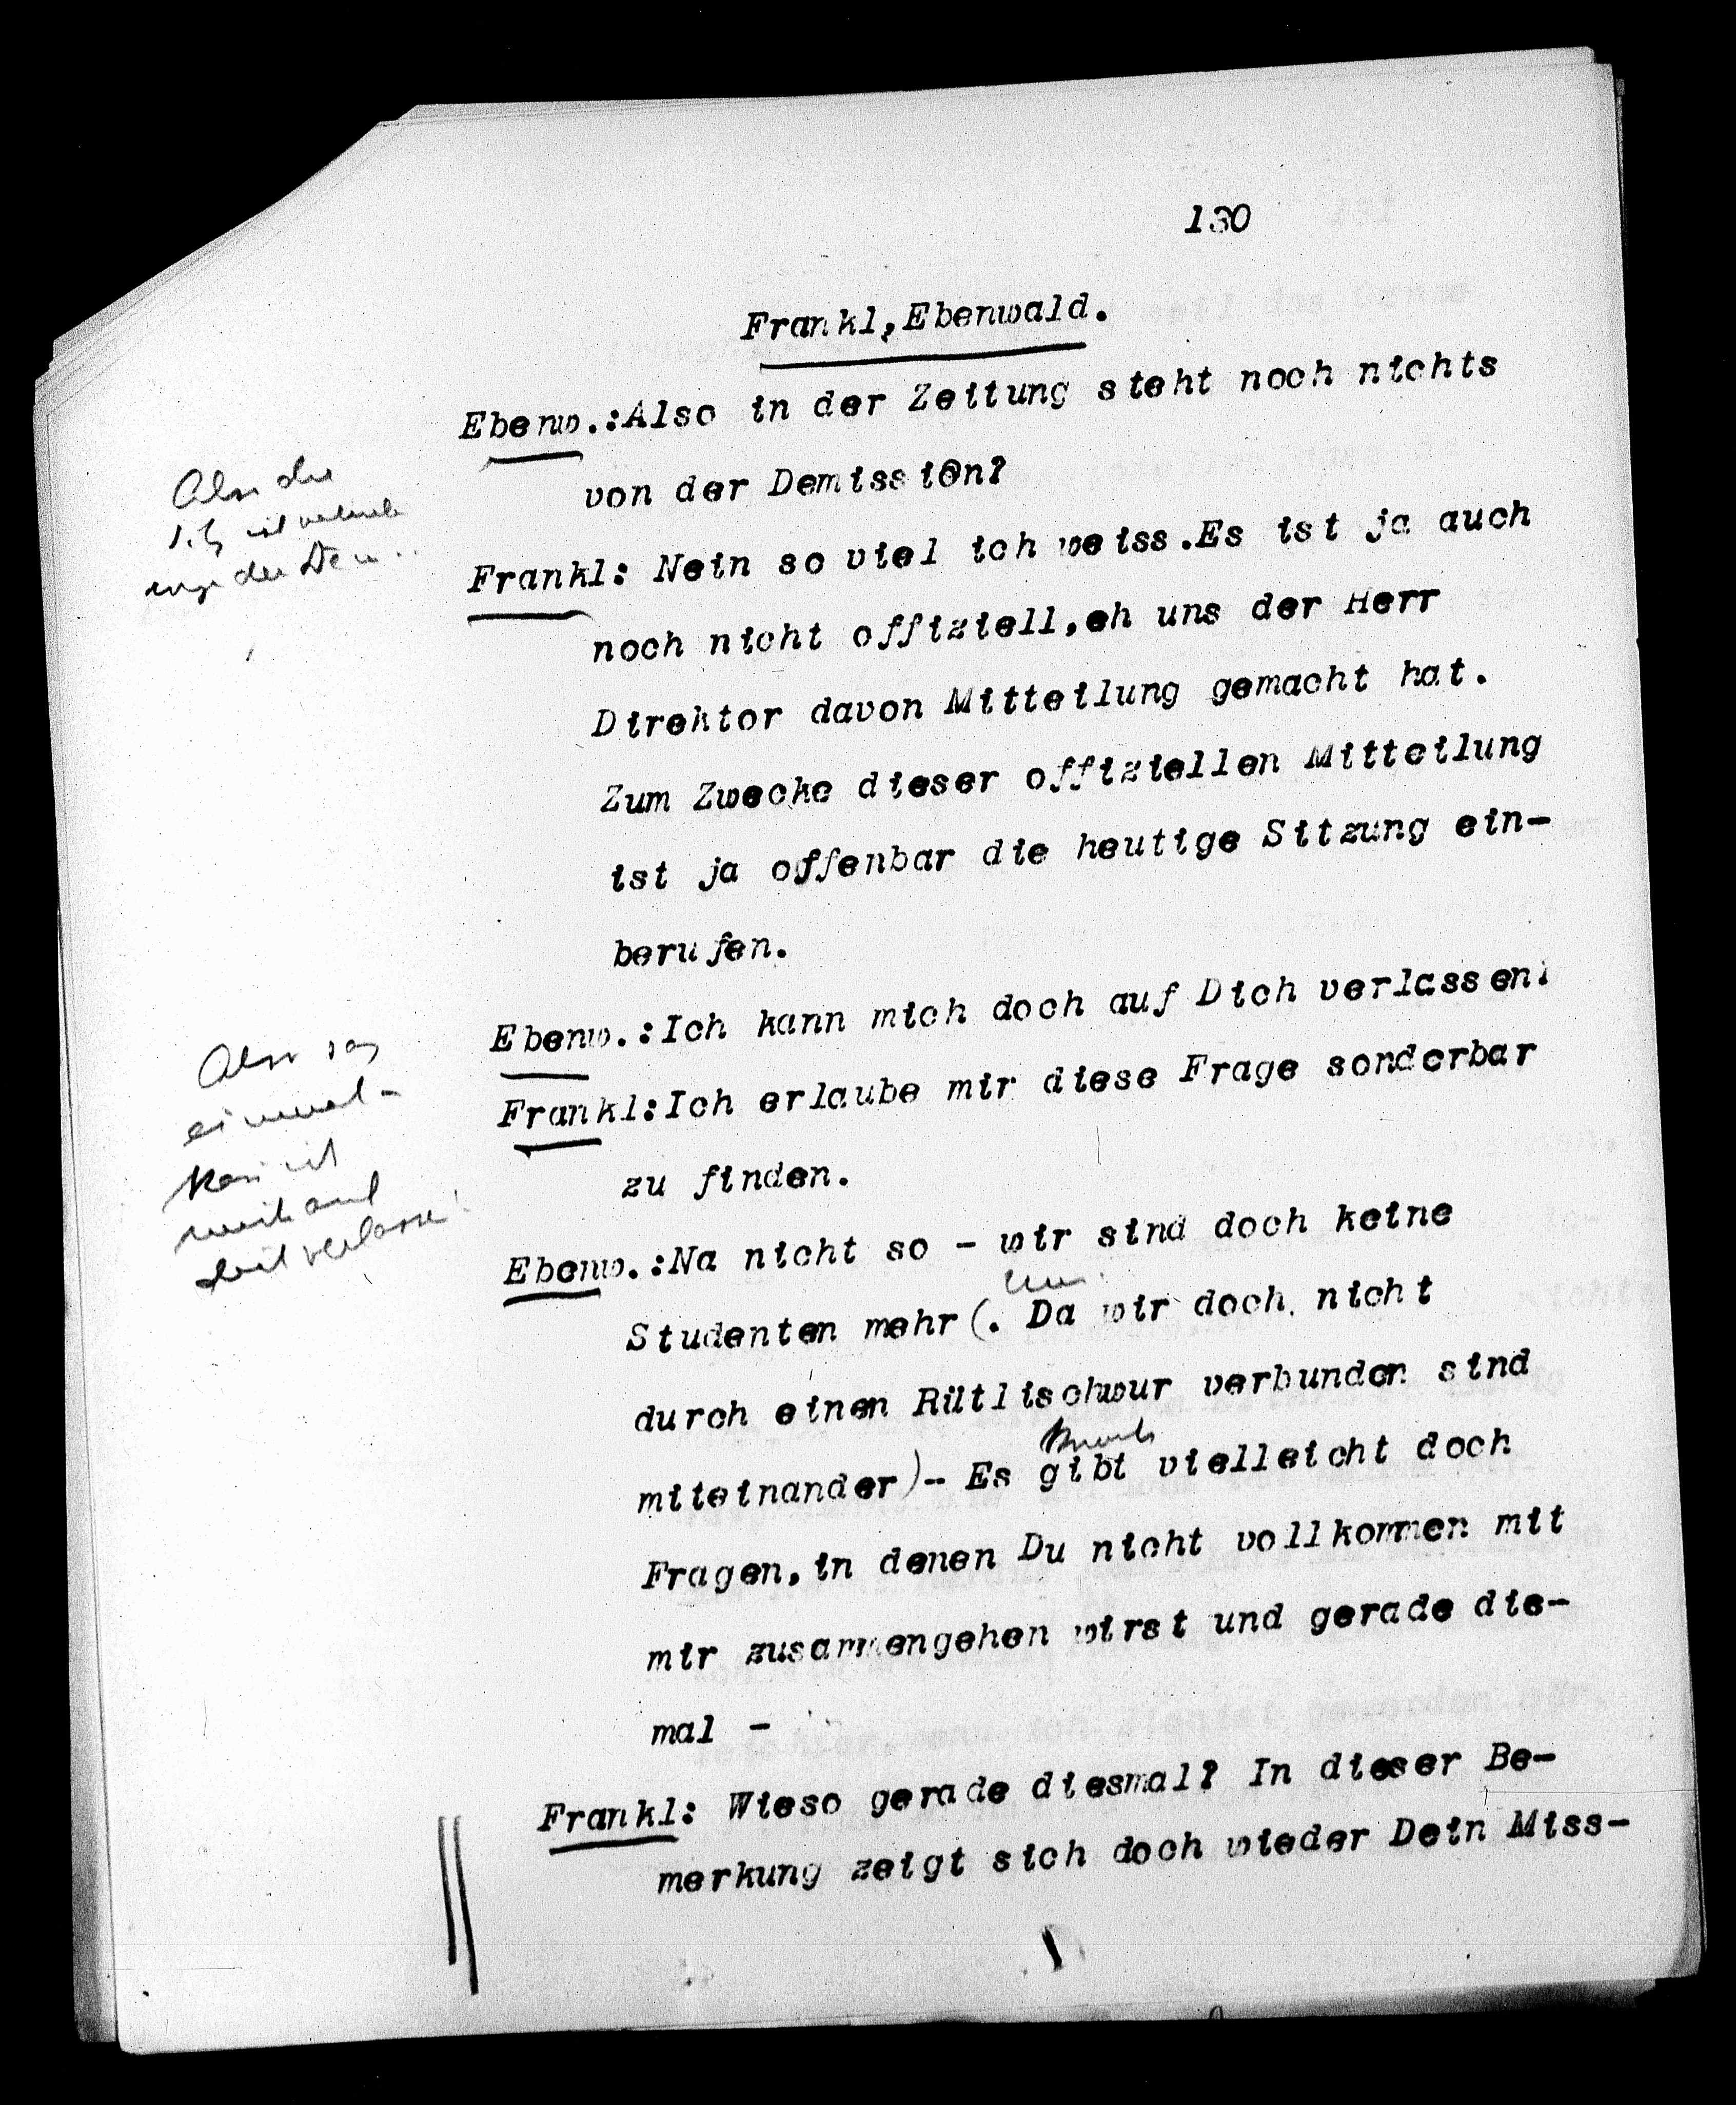 130
Frankl,Ebenwald.
Ebenw.:Also in der Zeitung steht noch nichts
von der Demission?
Frankl: Nein so viel ich weiss.Es ist ja auch
noch nicht offiziell,eh uns der Herr
Direktor davon Mitteilung gemacht hat.
Zum Zwecke dieser offiziellen Mitteilung
ist ja offenbar die heutige Sitzung ein-
berufen.
Ebenw.:Ich kann mich doch auf Dich verlassen?
Frankl:Ich erlaube mir diese Frage sonderbar
zu finden.
Ebenw.:Na nicht so - wir sind doch keine
Studenten mehr(. Da wir doch nicht
durch einen Rütlischwur verbunden sind
miteinander)- Es gibt vielleicht doch
Fragen,in denen Du nicht vollkommen mit
mir zusammengehen wirst und gerade die-
mal -
Frankl: Wieso gerade diesmal? In dieser Be-
merkung zeigt sich doch wieder Dein Miss-
Also die
Also sag
einmal -
kan ich
mich auf
dich verlassen!